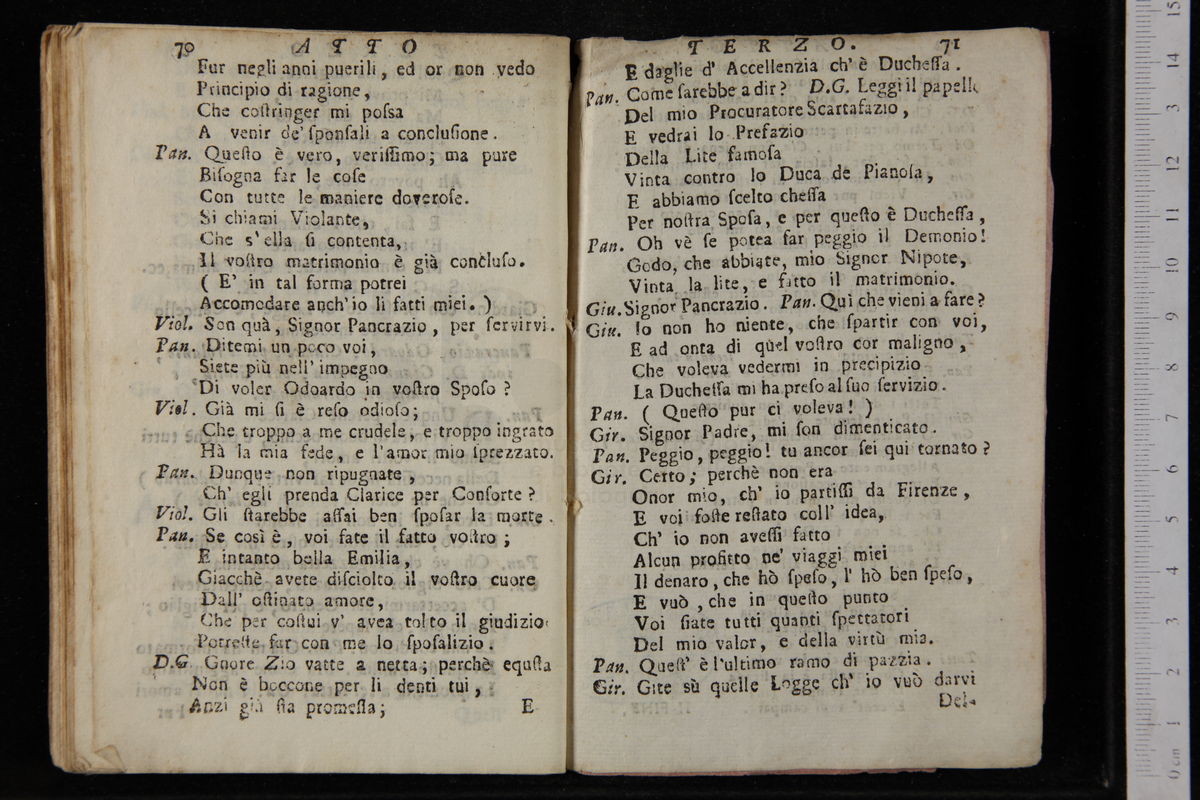 70 ATTO
Fur negli anni puerili, ed or non vedo
Principio di ragione,
Che coſtringer mi poſsa
A venir de' ſponſali a concluſione.
Pan. Queſto è vero, veriſſimo; ma pure
Biſogna far le coſe
Con tutte le maniere doveroſe.
Si chiami Violante,
Che s'ella ſi contenta,
Il voſtro matrimonio è già concluſo.
( E' in tal forma potrei
Accomodare anch'io li fatti miei. )
Viol. Son quà, Signor Pancrazio, per ſervirvi.
Pan. Ditemi un poco voi,
Siete più nell' impegno
Di voler Odoardo in voſtro Spoſo ?
Viol. Già mi ſi è reſo odioſo;
Che troppo a me crudele, e troppo ingrato
Hà la mia fede, e l'amor mio ſprezzato.
Pan. Dunque non ripugnate,
Ch' egli prenda Clarice per Conſorte ?
Viol. Gli ſtarebbe aſſai ben ſpoſar la morte.
Pan. Se così è, voi fate il fatto voſtro;
E intanto bella Emilia,
Giacchè avete diſciolto il voſtro cuore
Dall' oſtinato amore,
Che per coſtui v' avea tolto il giudizio
Potreſte far con me lo ſpoſalizio.
D.G Gnore Zio vatte a netta; perchè equſta
Non è boccone per li denti tui,
Anzi già ſta promeſſa; E
TERZO. 71
E daglie d' Accellenzia ch' è Ducheſſa.
Pan. Come ſarebbe a dir ? D.G. Leggi il papell
Del mio Procuratore Scartafazio,
E vedrai lo Prefazio
Della Lite famoſa
Vinta contro lo Duca de Pianoſa,
E abbiamo ſcelto cheſſa
Per noſtra Spoſa, e per queſto è Ducheſſa,
Pan. Oh vè ſe potea far peggio il Demonio!
Godo, che abbiate, mio Signor Nipote,
Vinta la lite, e fatto il matrimonio.
Giu. Signor Pancrazio. Pan. Qui che vieni a fare ?
Giu. Io non ho niente, che ſpartir con voi,
E ad onta di quel voſtro cor maligno,
Che voleva vedermi in precipizio
La Ducheſſa mi ha preſo al ſuo ſervizio.
Pan. ( Queſto pur ci voleva! )
Gir. Signor Padre, mi ſon dimenticato.
Pan. Peggio, peggio! tu ancor ſei qui tornato ?
Gir. Certo; perchè non era
Onor mio, ch' io partiſſi da Firenze,
E voi foſte reſtato coll' idea,
Ch' io non aveſſi fatto
Alcun profitto ne' viaggi miei
Il denaro, che hò ſpeſo, l' hò ben ſpeſo,
E vuò, che in queſto punto
Voi ſiate tutti quanti ſpettatori
Del mio valor, e della virtù mia.
Pan. Queſt' è l'ultimo ramo di pazzia.
Gir. Gite sù quelle Logge ch' io vuò darvi
Del-